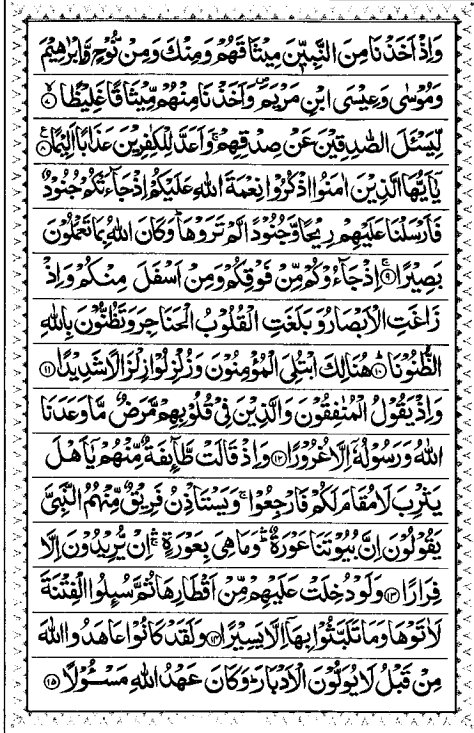 وَاِذْ اَخَذْنَا مِنَ النَّبِيّٖنَ مِيْثَاقَهُمْ وَمِنْكَ وَمِنْ نُّوْحٍ وَّاِبْرٰهِيْمَ
وَمُوْسٰى وَعِيْسَى ابْنِ مَرْيَمَ ۪ وَاَخَذْنَا مِنْهُمْ مِّيْثَاقًا غَلِيْظًا ۙ﴿۷﴾
لِّيَسْـَٔلَ الصّٰدِقِيْنَ عَنْ صِدْقِهِمْ ۚ وَاَعَدَّ لِلْكٰفِرِيْنَ عَذَابًا اَلِيْمًا ﴿۸﴾
يٰۤاَيُّهَا الَّذِيْنَ اٰمَنُوا اذْكُرُوْا نِعْمَةَ اللّٰهِ عَلَيْكُمْ اِذْ جَآءَتْكُمْ جُنُوْدٌ
فَاَرْسَلْنَا عَلَيْهِمْ رِيْحًا وَّجُنُوْدًا لَّمْ تَرَوْهَا ؕ وَكَانَ اللّٰهُ بِمَا تَعْمَلُوْنَ
بَصِيْرًا ۚ﴿۹﴾ اِذْ جَآءُوْكُمْ مِّنْ فَوْقِكُمْ وَمِنْ اَسْفَلَ مِنْكُمْ وَاِذْ
زَاغَتِ الْاَبْصَارُ وَبَلَغَتِ الْقُلُوْبُ الْحَنَاجِرَ وَتَظُنُّوْنَ بِاللّٰهِ
الظُّنُوْنَا ﴿۱۰﴾ هُنَالِكَ ابْتُلِيَ الْمُؤْمِنُوْنَ وَزُلْزِلُوْا زِلْزَالًا شَدِيْدًا ﴿۱۱﴾
وَاِذْ يَقُوْلُ الْمُنٰفِقُوْنَ وَالَّذِيْنَ فِيْ قُلُوْبِهِمْ مَّرَضٌ مَّا وَعَدَنَا
اللّٰهُ وَرَسُوْلُهٗۤ اِلَّا غُرُوْرًا ﴿۱۲﴾ وَاِذْ قَالَتْ طَّآئِفَةٌ مِّنْهُمْ يٰۤاَهْلَ
يَثْرِبَ لَا مُقَامَ لَكُمْ فَارْجِعُوْا ۚ وَيَسْتَاْذِنُ فَرِيْقٌ مِّنْهُمُ النَّبِيَّ
يَقُوْلُوْنَ اِنَّ بُيُوْتَنَا عَوْرَةٌ ۛؕ وَمَا هِيَ بِعَوْرَةٍ ۛۚ اِنْ يُّرِيْدُوْنَ اِلَّا
فِرَارًا ﴿۱۳﴾ وَلَوْ دُخِلَتْ عَلَيْهِمْ مِّنْ اَقْطَارِهَا ثُمَّ سُىِٕلُوا الْفِتْنَةَ
لَاٰتَوْهَا وَمَا تَلَبَّثُوْا بِهَاۤ اِلَّا يَسِيْرًا ﴿۱۴﴾ وَلَقَدْ كَانُوْا عَاهَدُوا اللّٰهَ
مِنْ قَبْلُ لَا يُوَلُّوْنَ الْاَدْبَارَ ؕ وَكَانَ عَهْدُ اللّٰهِ مَسْـُٔوْلًا ﴿۱۵﴾